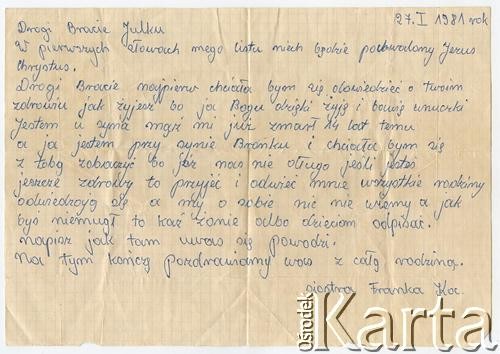 27. I 1981 rok
Drogi Bracie Julku
W pierwszych słowach mego listu niech będzie pochwalony Jezus
Chrystus.
Drogi Bracie najpierw chciała bym się dowiedzieć o twoim
zdrowiu jak żyjesz bo ja Bogu dzięki żyję i bawię wnuczki
Jestem u syna mąż mi już zmarł 14 lat temu
a ja jestem przy synie Bronku i chciała bym się
z tobą zobaczyć bo już nas nie długo jeśli jesteś
jeszcze zdrowy to przyjeć i odwieć mnie wszystkie rodziny
odwiedzają się a my o sobie nic nie wiemy a jak
byś niemugł to każ żonie albo dzieciom odpisać.
napisz jak tam uwas się powodzi.
Na tym kończę Pozdrawiamy was z całą rodziną.
siostra Franka Koc.
Ośrodek
Karta